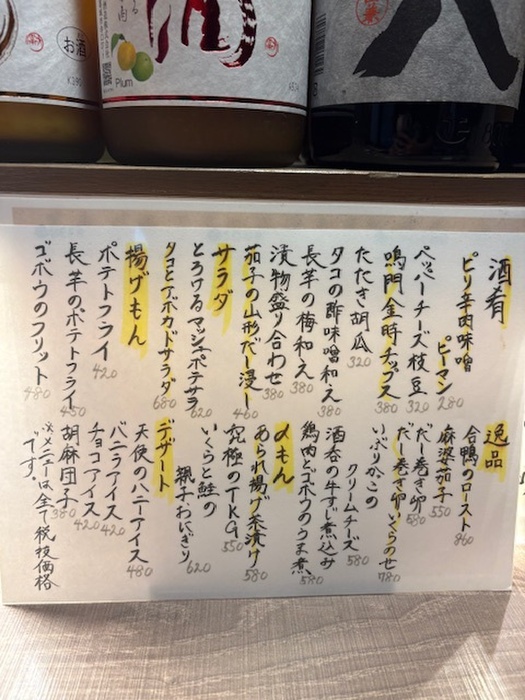 お酒
¥390
Plum
酒肴
ピリ辛肉味噌
ピーマン 280
ペッパーチーズ枝豆 320
鳴門金時チップス 380
たたき胡瓜 320
タコの酢味噌和え 380
長芋の梅和え 380
漬物盛り合わせ 380
茄子の山形だし浸し 460
サラダ
とろけるマシュポテサラ 620
タコとアボカドサラダ 680
揚げもん
ポテトフライ 420
長芋のポテトフライ 450
ゴボウのフリット 480
逸品
合鴨のロースト 860
麻婆茄子 550
だし巻き卵 580
だし巻き卵いくらのせ 780
いぶりがこの
クリームチーズ 580
酒呑の牛すじ煮込み 580
鶏肉とゴボウのうま煮 580
〆もん
あられ揚げ茶漬け 580
究極のTKG 550
いくらと鮭の
親子おにぎり 620
デザート
天使のハニーアイス 480
バニラアイス 420
チョコアイス 420
胡麻団子 380
※メニューは全て税抜価格
です。